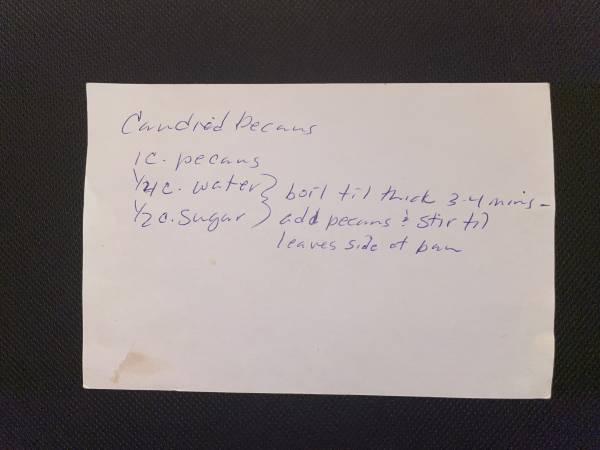 Candied Pecans
1 c. pecans
1/4 c. water } boil til thick 3-4 mins -
1/2 c. sugar } add pecans & stir til
leaves side of pan